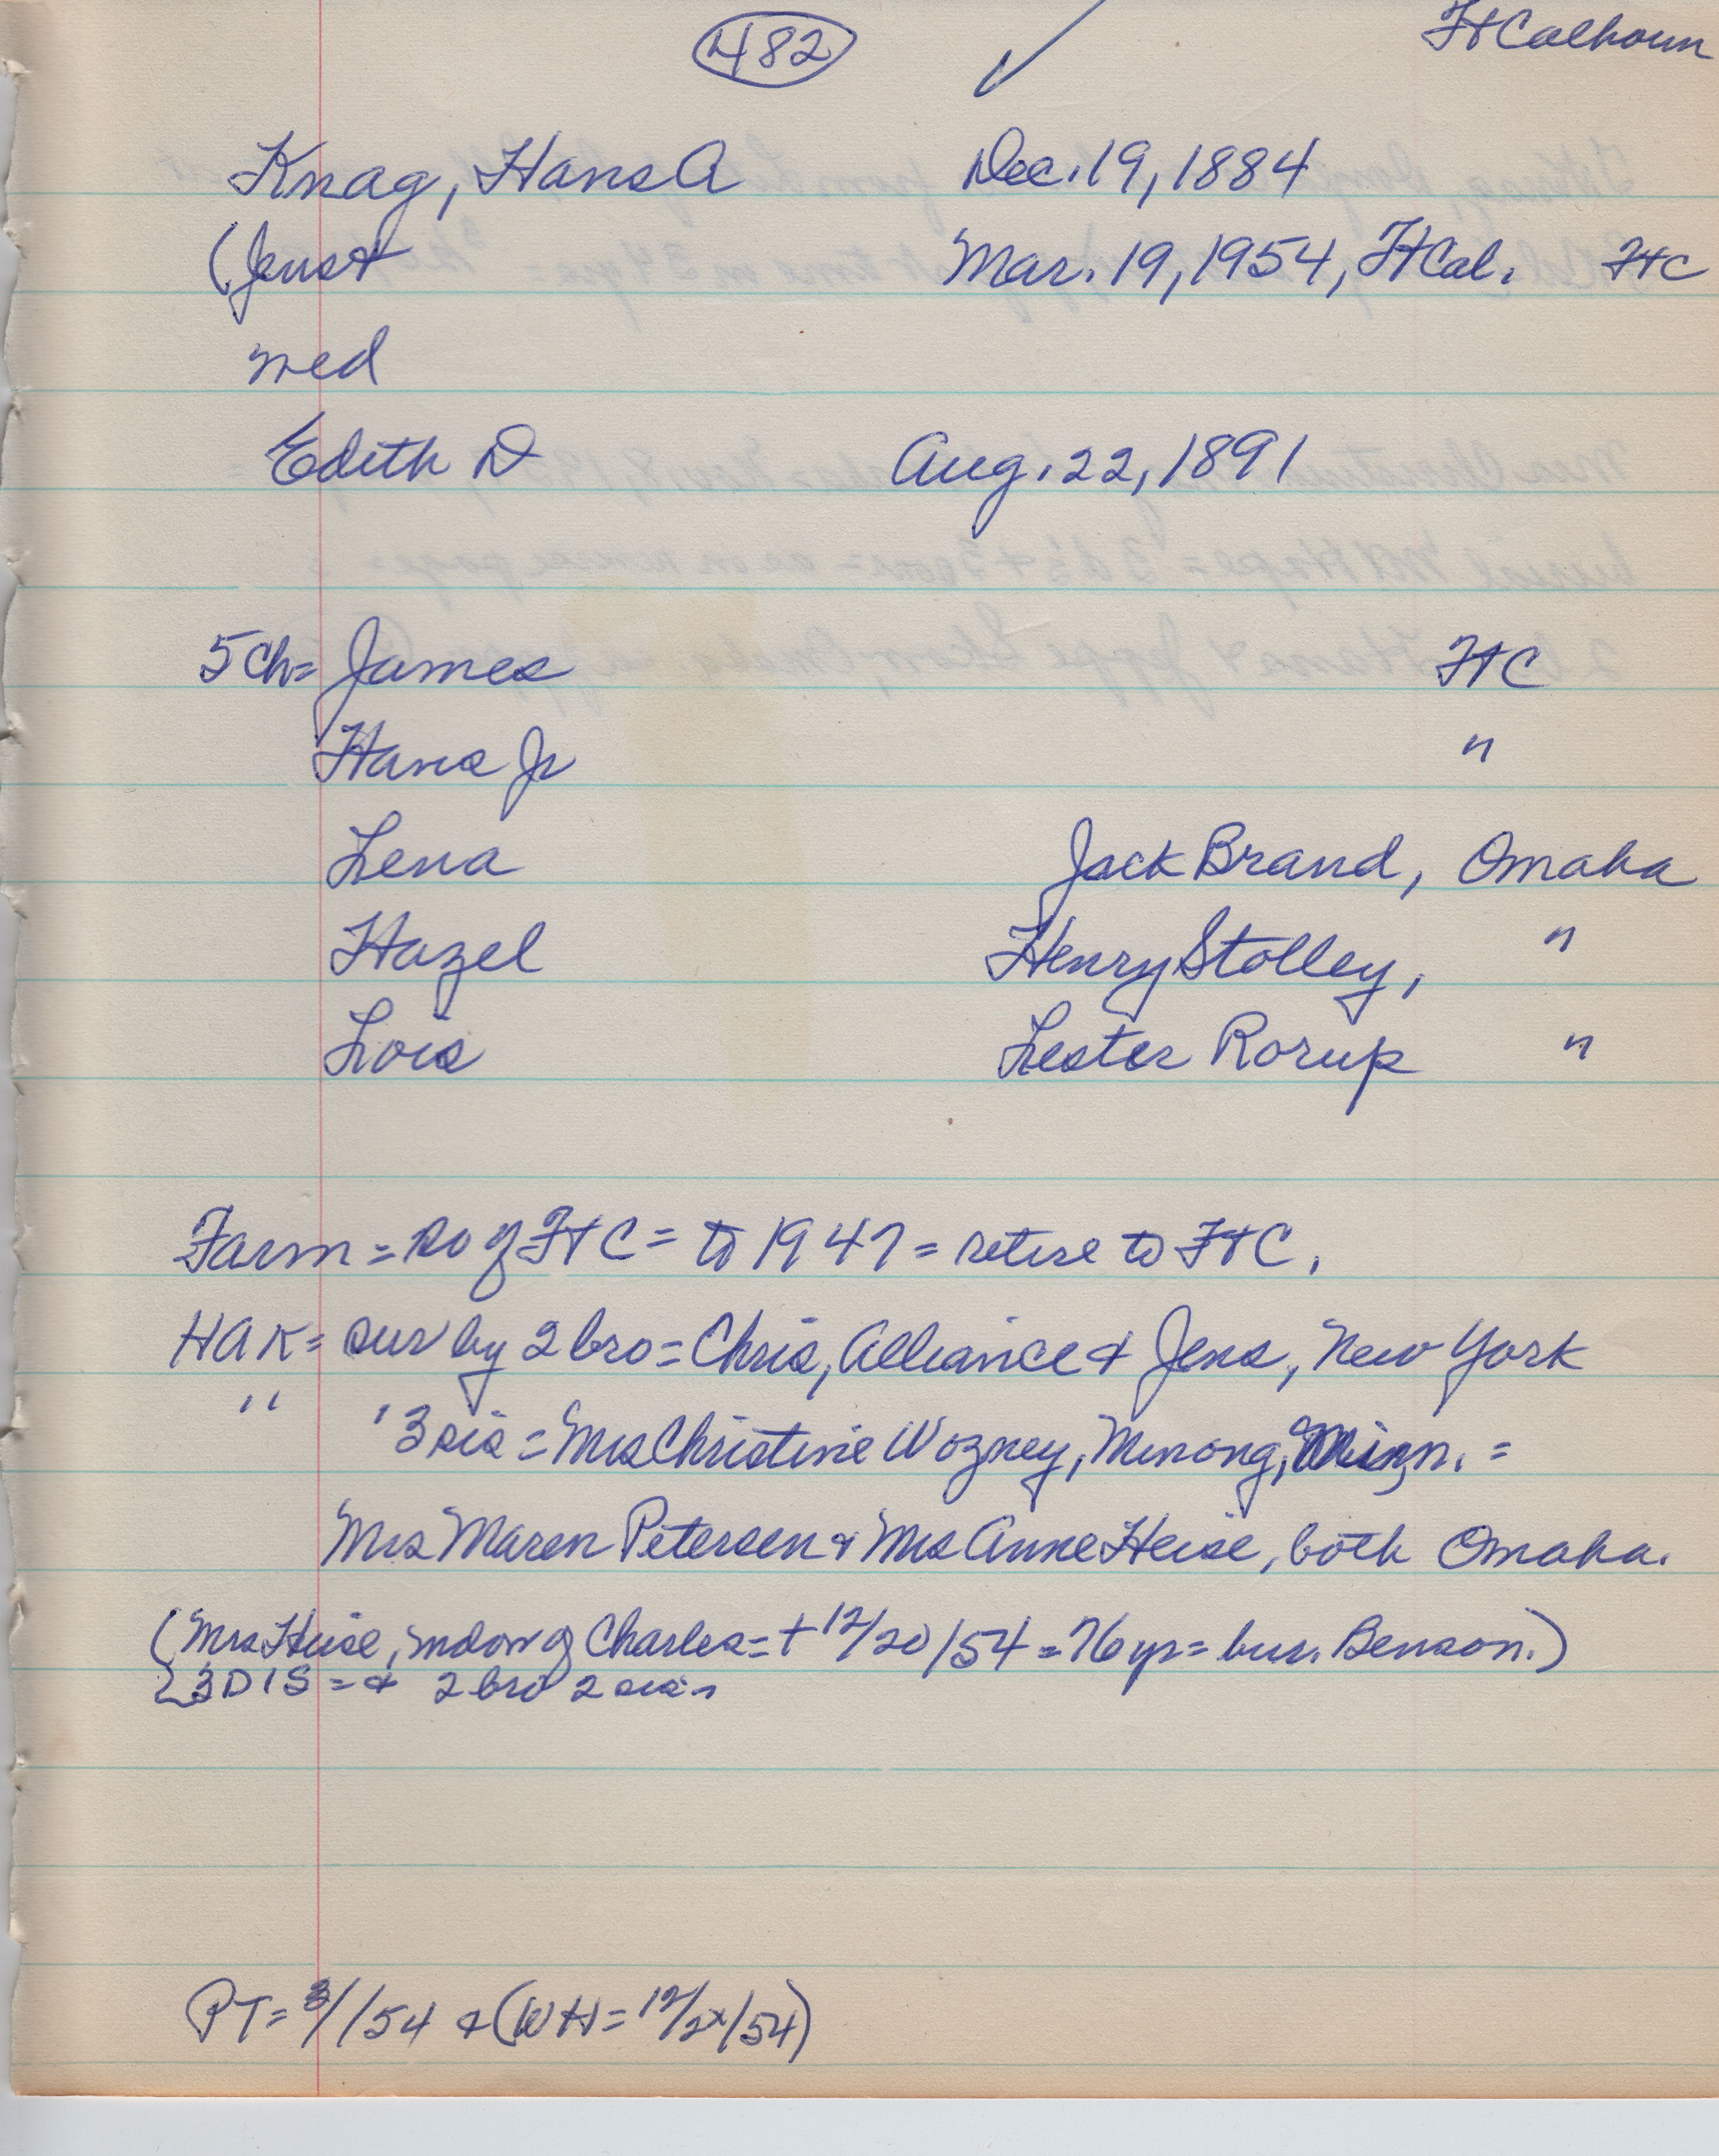 482 ✓ Ft Calhoun
Knag, Hans A Dec. 19, 1884
(Jens + Mar. 19, 1954, Ft Cal. FtC
med
Edith D Aug. 22, 1891
5 Ch = James FtC
Hans Jr "
Lena Jack Brand, Omaha
Hazel Henry Stolley, "
Lois Lester Rorup "
Farm = so of FtC = to 1947 = retire to FtC.
HAK = sur by 2 bro = Chris, Alliance & Jens, New York
" ' 3 sis = Mrs Christine Wozney, Minong, Minn. =
Mrs Maren Petersen & Mrs Anne Heise, both Omaha.
(Mrs Heise, widow of Charles = + 12/20/54 = 76 yr = bur. Benson.)
3D 1S = & 2 bro 2 sis
PT = 3/ /54 & (WH = 12/2x/54)